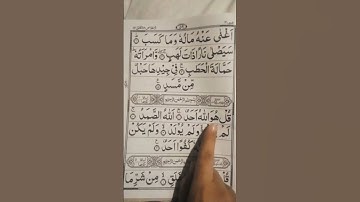 اَغْنٰى عَنْهُ مَالُهٗ وَمَا كَسَبَ
سَيَصْلٰى نَارًا ذَاتَ لَهَبٍ وَّامْرَاَتُهٗ
حَمَّالَةَ الْحَطَبِ فِيْ جِيْدِهَا حَبْلٌ
مِّنْ مَّسَدٍ
قُلْ هُوَ اللّٰهُ اَحَدٌ اَللّٰهُ الصَّمَدُ
لَمْ وَلَمْ يُوْلَدْ وَلَمْ يَكُنْ
كُفُوًا اَحَدٌ
مِنْ شَرِّ مَا